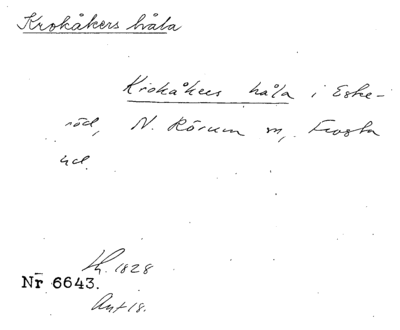 Krokåkers håla
Krokåkers håla i Eske-
röd, N. Rörum sn, Frosta
hd.
Lh. 1828
Nr 6643.
Ant 18.